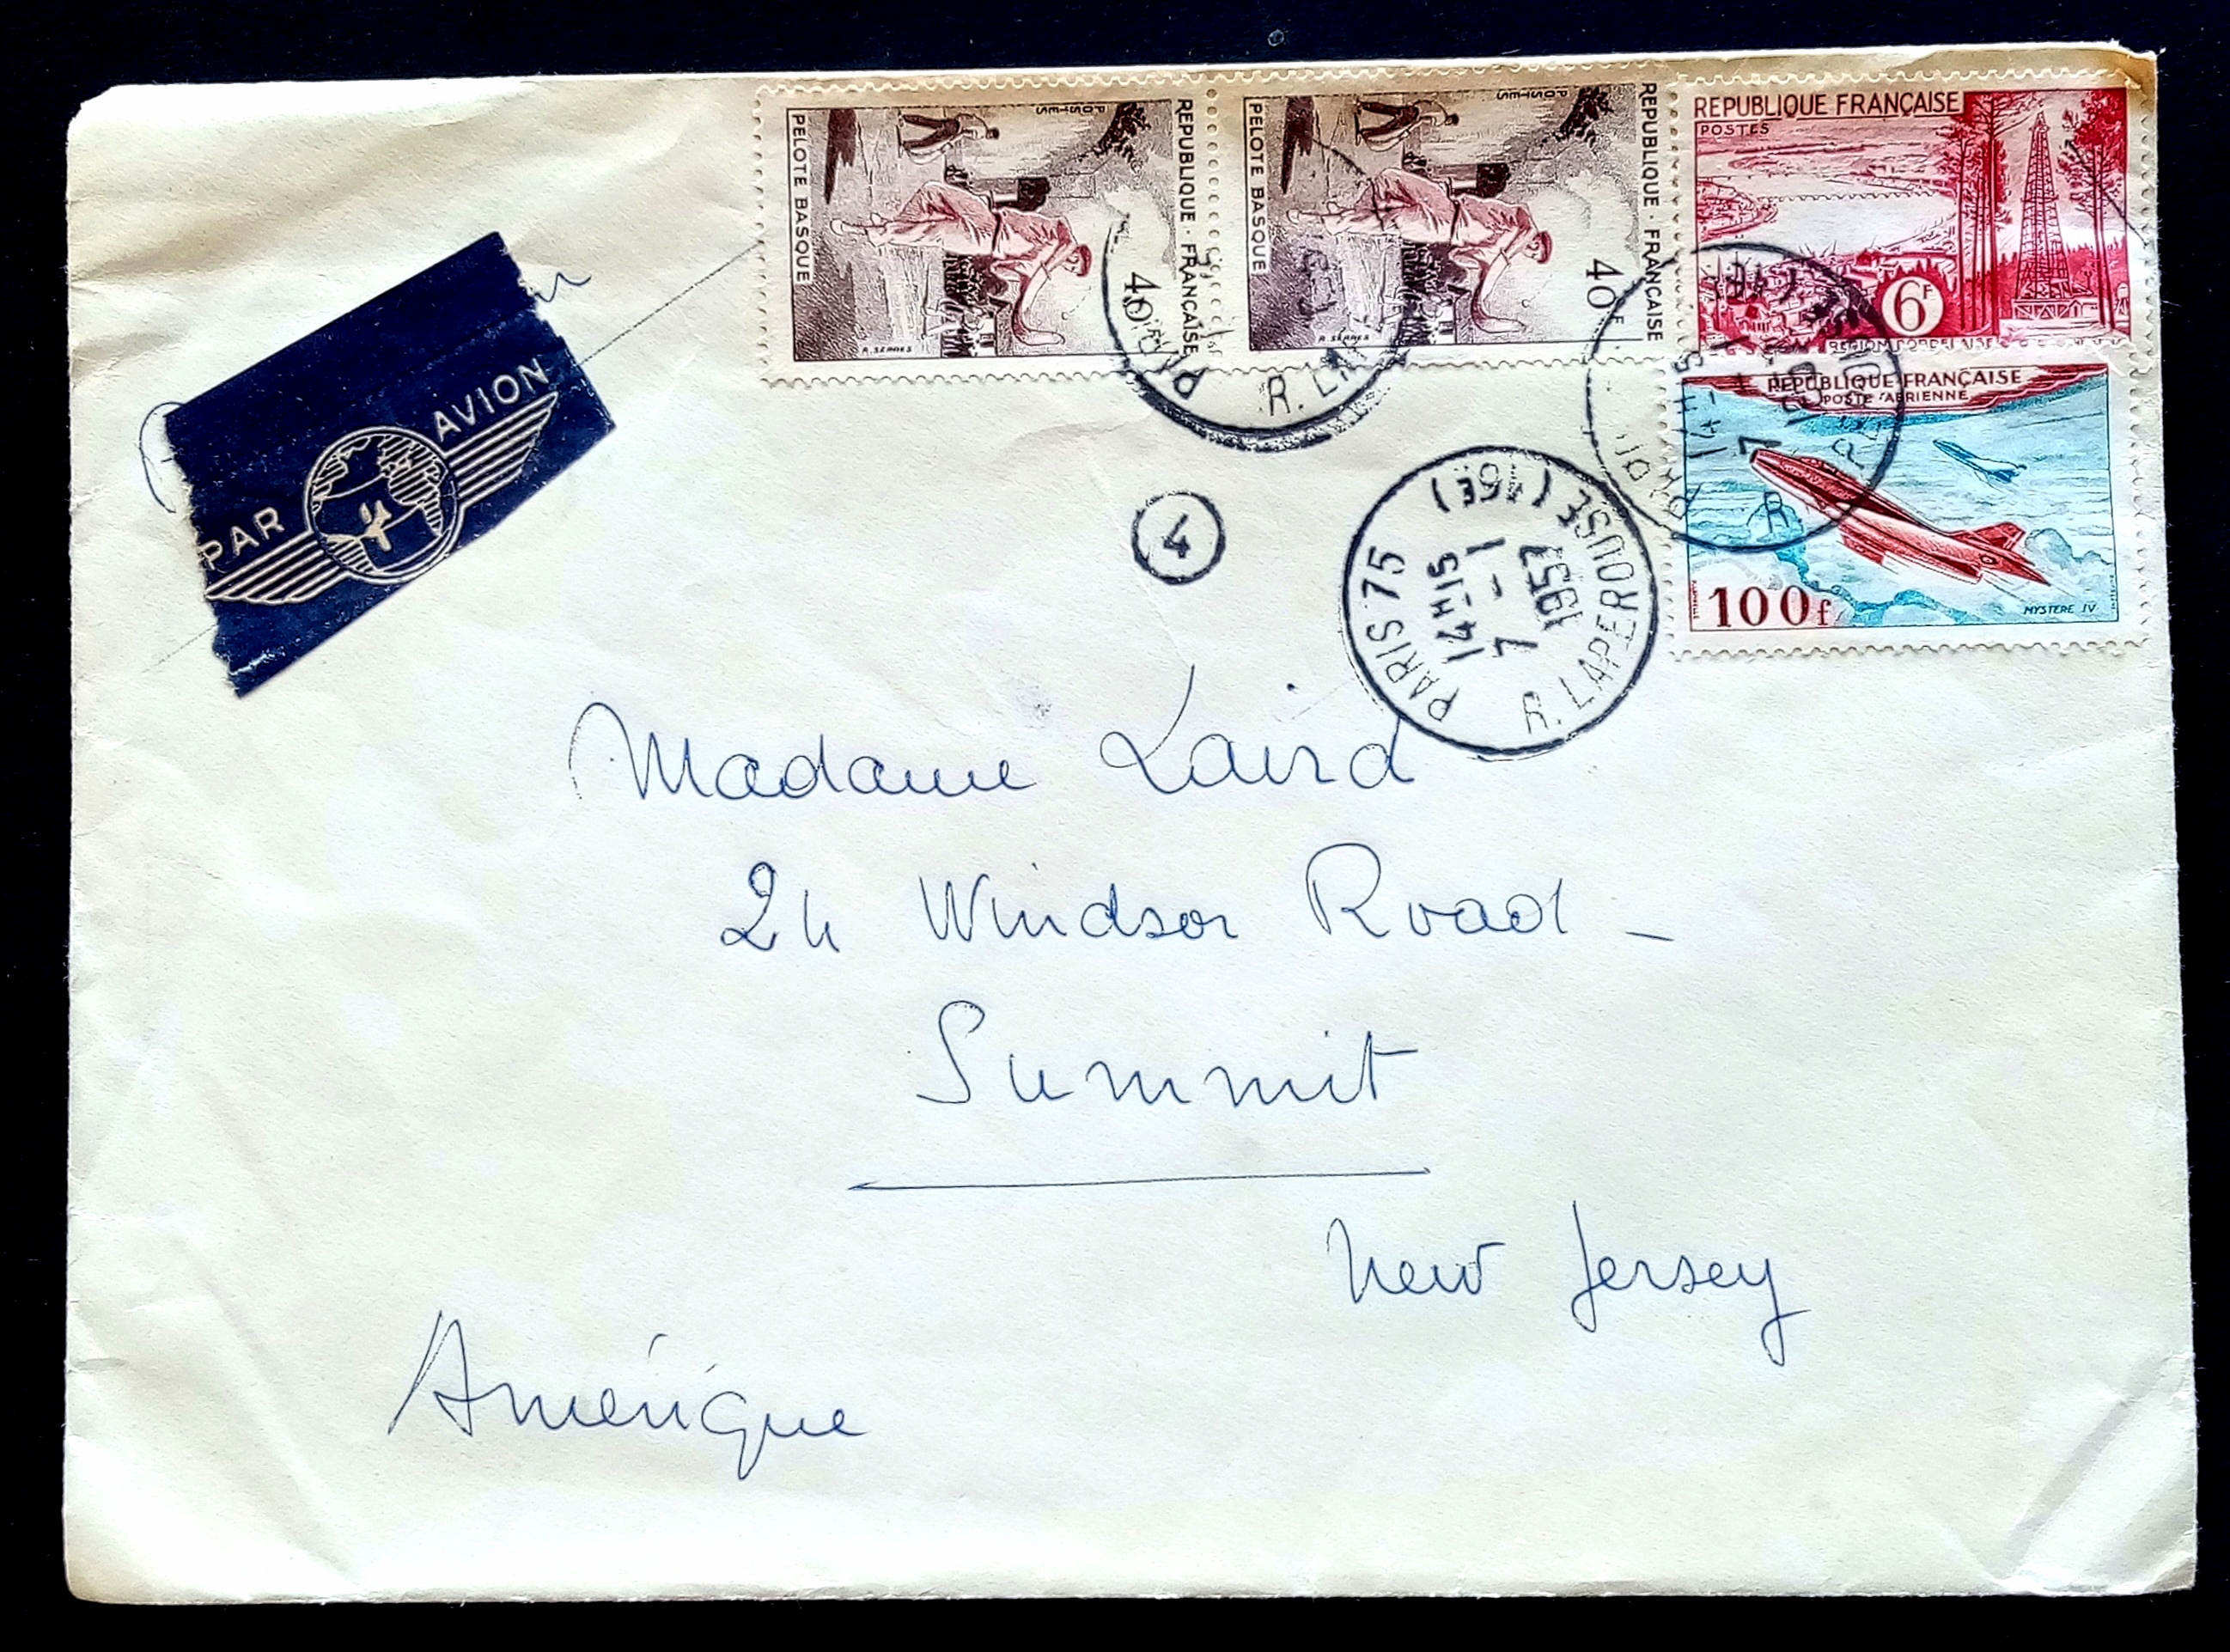 REPUBLIQUE · FRANÇAISE
POSTES
40F
PELOTE BASQUE
R. SERRES
REPUBLIQUE · FRANÇAISE
POSTES
40F
PELOTE BASQUE
R. SERRES
REPUBLIQUE FRANÇAISE
POSTES
6F
REGION BORDELAISE
REPUBLIQUE FRANÇAISE
POSTE AERIENNE
100f
MYSTERE IV
PAR AVION
PARIS 75
R. LAPEROUSE (16E)
14H15
7 - 1
1957
4
Madame Laird
24 Windsor Road -
Summit
New Jersey
Amérique